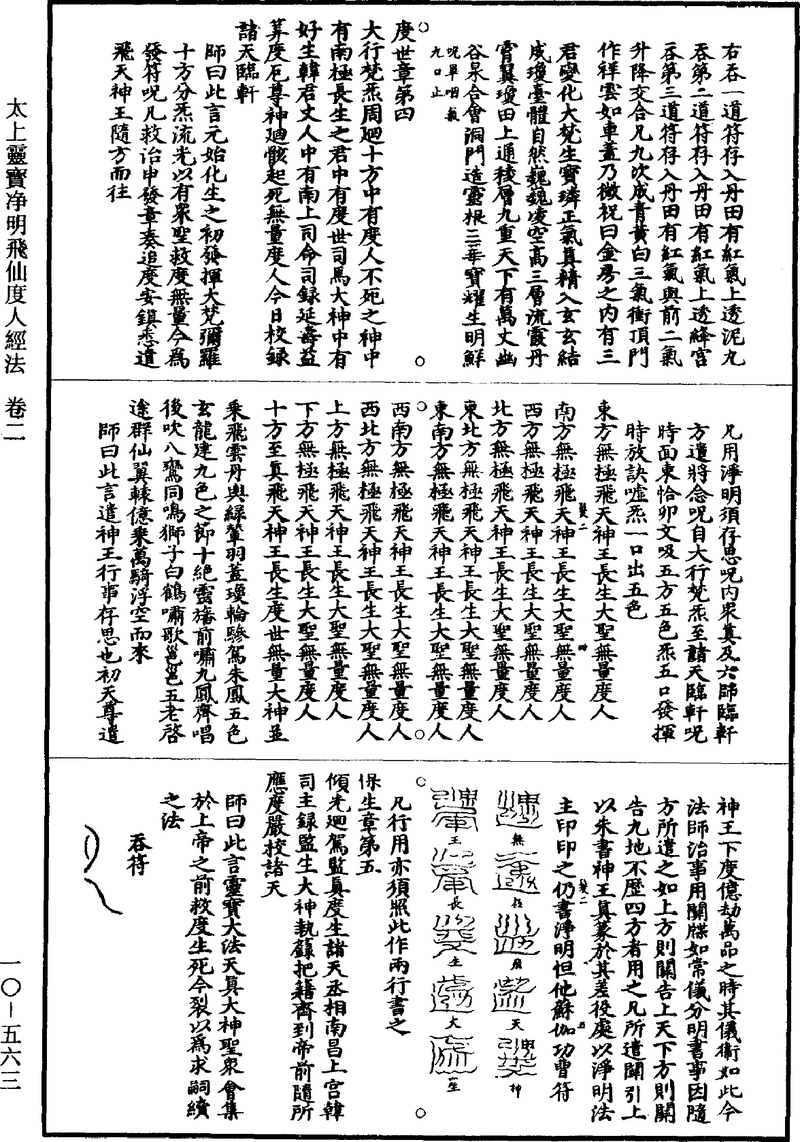 太上靈寶淨明飛仙度人經法　卷二
一〇－五六三
右吞一道符存入丹田有紅氣上透泥九
吞第二道符存入丹田有紅氣上透絳宮
吞第三道符存入丹田有紅氣與前二氣
升降交合凡九次成青黃白三氣衝頂門
作祥雲如車蓋乃微祝曰金房之內有三
君變化大梵生寶璘正氣真精入玄玄結
成瓊臺體自然巍巍凌空高三層流霞丹
霄翼瓊田上通稜層九重天下有萬丈幽
谷泉合會洞門造靈根三華寶耀生明鮮
呪畢咽氣
九口止
度世章第四
大行梵炁周廻十方中有度人不死之神中
有南極長生之君中有度世司馬大神中有
好生韓君丈人中有南上司命司錄延壽益
算度厄尊神廻骸起死無量度人今日校錄
諸天臨軒
師曰此言元始化生之初發揮大梵彌羅
十方分炁流光以有衆聖救度無量今為
發符呪凡救治申發章奏追度安鎮悉遣
飛天神王隨方而往
凡用淨明須存思呪內衆真及六師臨軒
方遣將念呪自大行梵炁至諸天臨軒呪
時面東恰卯文吸五方五色炁五口發揮
時放訣噓炁一口出五色
東方無極飛天神王長生大聖無量度人
南方無極飛天神王長生大聖無量度人
西方無極飛天神王長生大聖無量度人
北方無極飛天神王長生大聖無量度人
東北方無極飛天神王長生大聖無量度人
東南方無極飛天神王長生大聖無量度人
西南方無極飛天神王長生大聖無量度人
西北方無極飛天神王長生大聖無量度人
上方無極飛天神王長生大聖無量度人
下方無極飛天神王長生大聖無量度人
十方至真飛天神王長生度世無量大神並
乘飛雲丹輿綠輦羽蓋瓊輪驂駕朱鳳五色
玄龍建九色之節十絕靈旛前嘯九鳳齊唱
後吹八鸞同鳴獅子白鶴嘯歌邕邕五老啓
途群仙翼轅億乘萬騎浮空而來
師曰此言遣神王行事存思也初天尊遣
神王下度億劫萬品之時其儀衛如此今
法師治事用關牒如常儀分明書事因隨
方所遣之如上方則關告上天下方則關
告九地不歷四方者用之凡所遣關引上
以朱書神王真篆於其差役處以淨明法
主印印之仍書淨明但他蘇伽功曹符
無極飛天神
王長生大聖
凡行用亦須照此作兩行書之
保生章第五
傾光廻駕監真度生諸天丞相南昌上宮韓
司主錄監生大神執籙把籍齊到帝前隨所
應度嚴校諸天
師曰此言靈寶大法天真大神聖衆會集
於上帝之前救度生死今裂以為求嗣續
之法
吞符